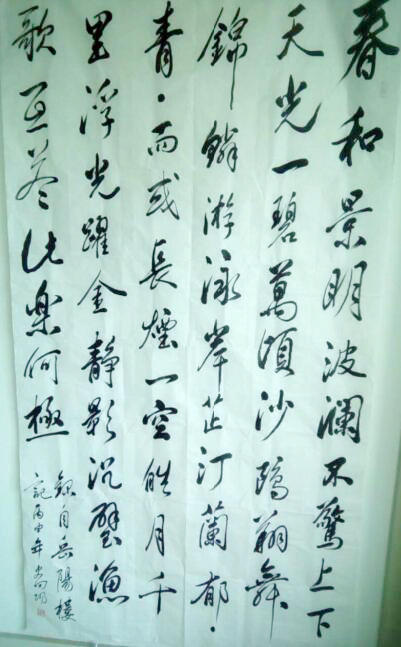 春和景明波澜不驚上下
天光一碧萬頃沙鷗翔舞
錦鱗游泳岸芷汀蘭郁·
青·而或長煙一空皓月千
里浮光躍金靜影沉璧漁
歌互荅此樂何極
録自岳陽樓
記丙申年